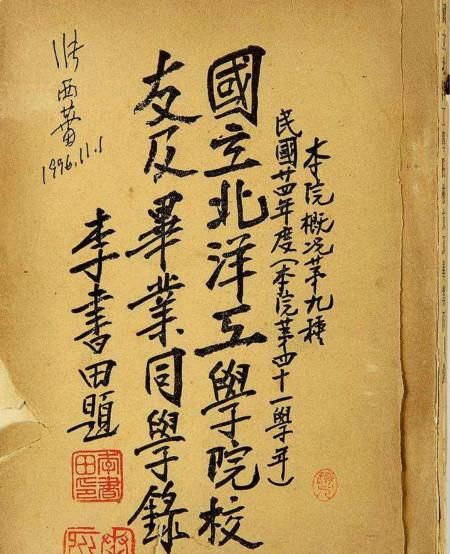 本院概况第九種
民國廿四年度(本院第四十一學年)
國立北洋工學院校
友及畢業同學錄
李書田題
李書
田印
張西蕾
1996.11.1